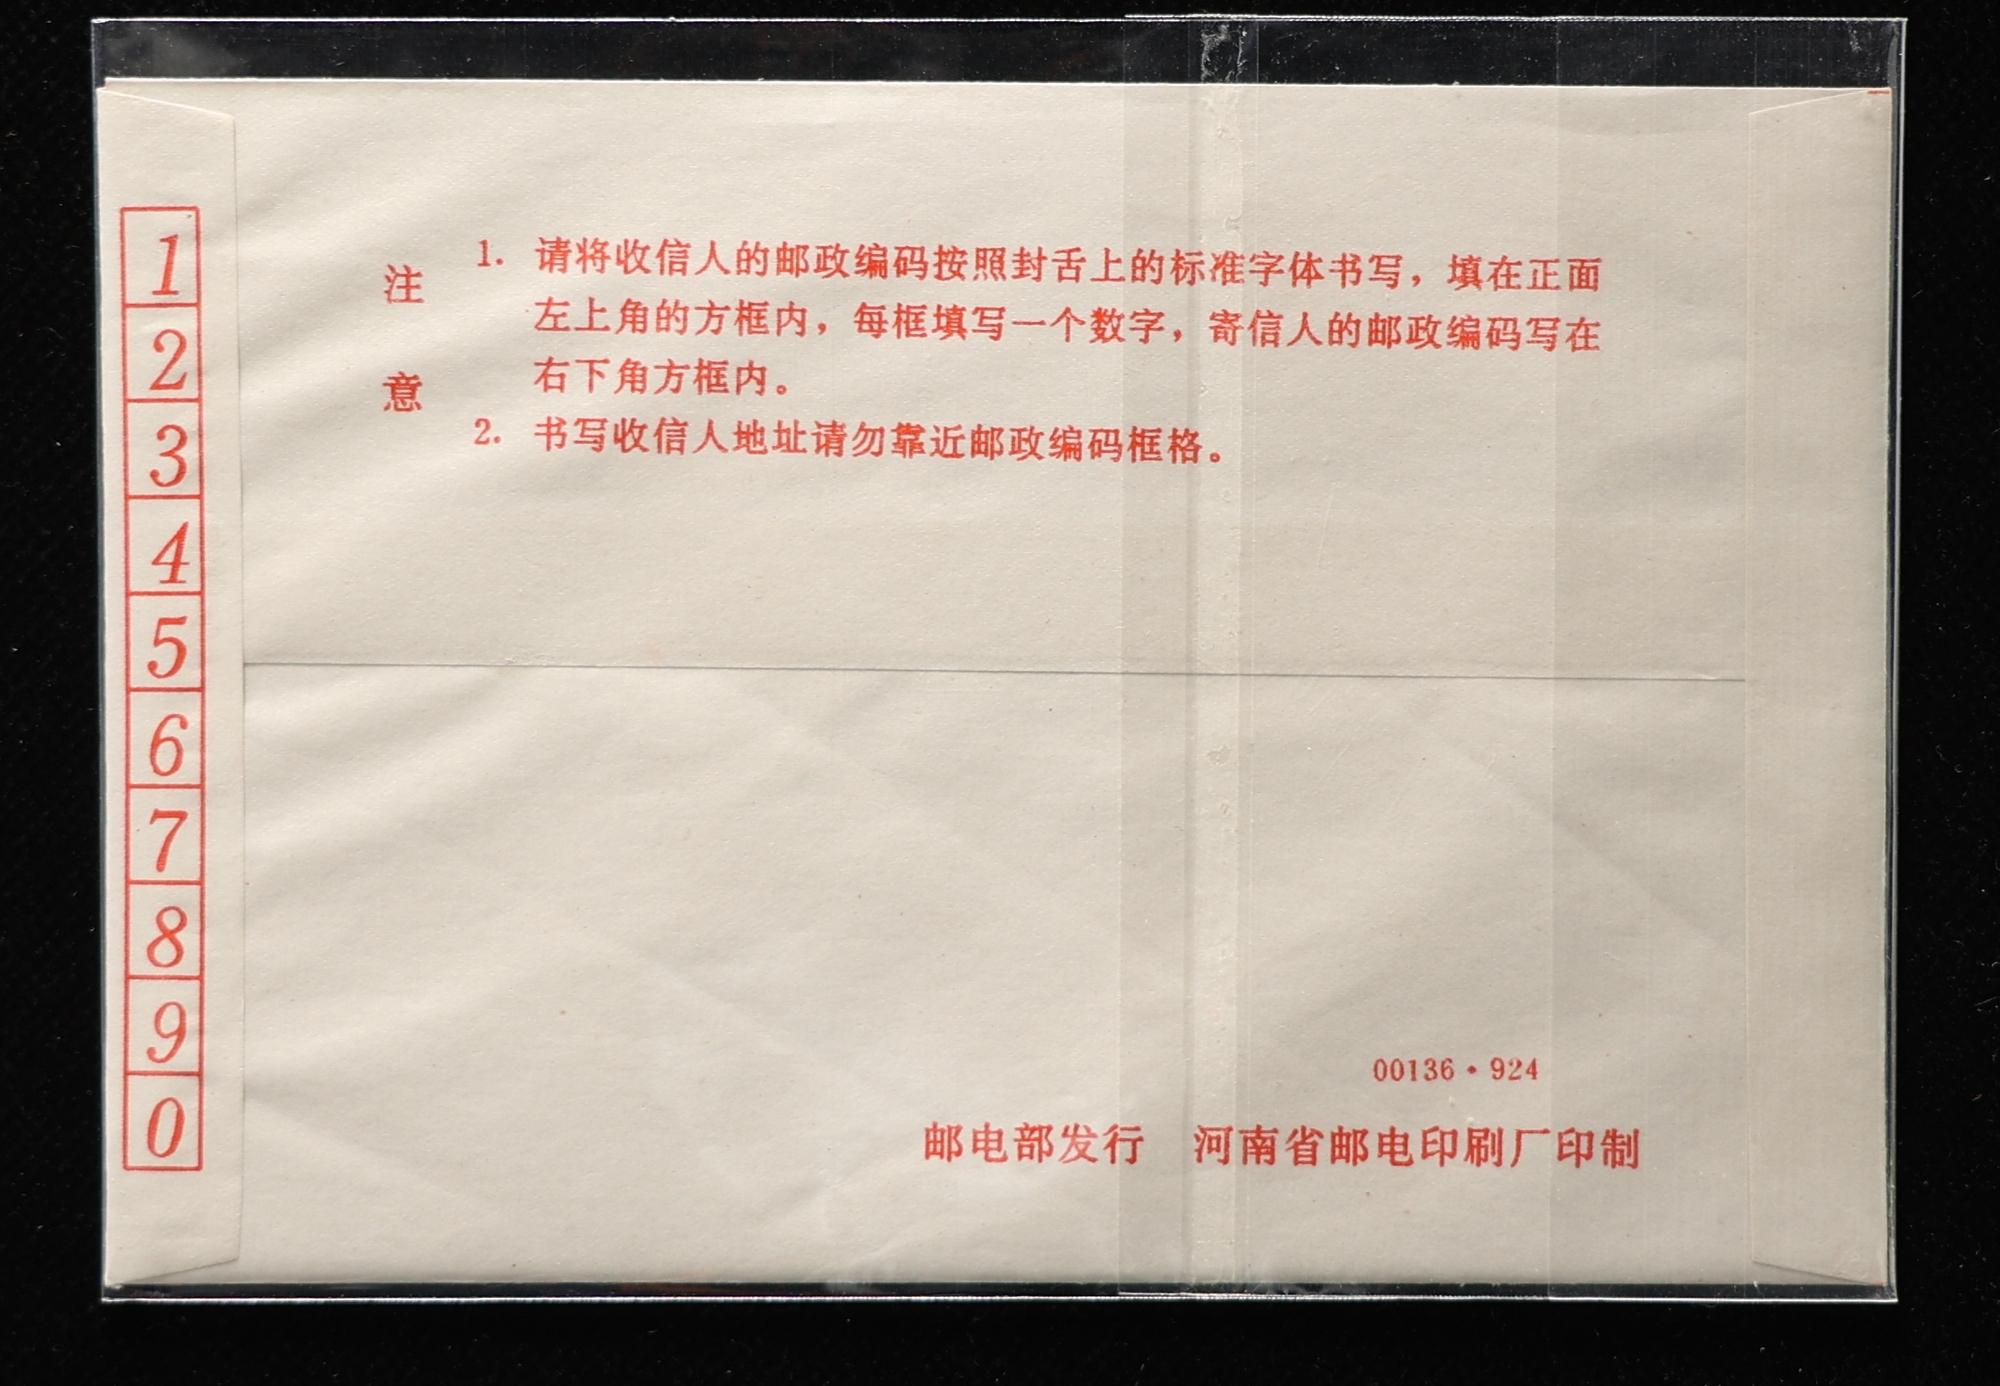 1
2
3
4
5
6
7
8
9
0
注意
1. 请将收信人的邮政编码按照封舌上的标准字体书写，填在正面
左上角的方框内，每框填写一个数字，寄信人的邮政编码写在
右下角方框内。
2. 书写收信人地址请勿靠近邮政编码框格。
00136·924
邮电部发行 河南省邮电印刷厂印制